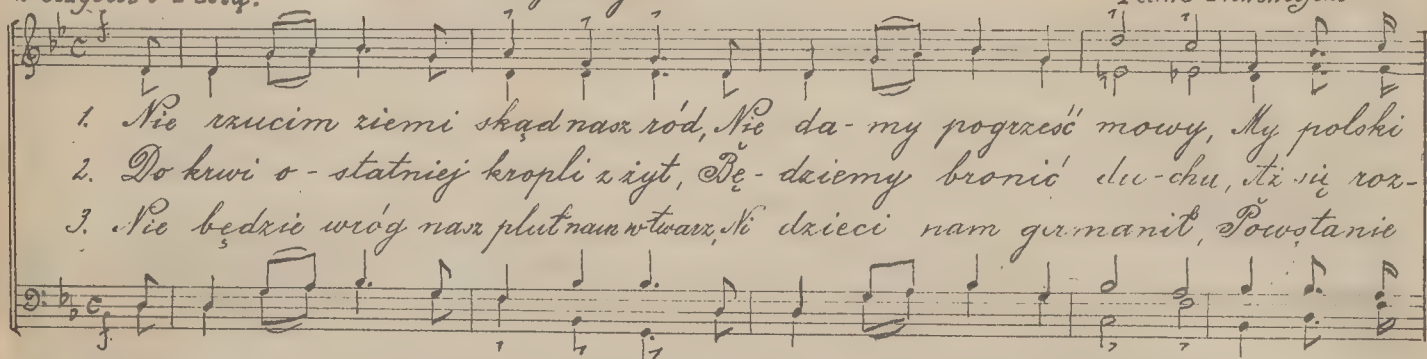 1. Nie rzucim ziemi skąd nasz ród, Nie da-my pogrześć mowy, My polski
2. Do krwi o-statniej kropli z żył, Bę-dziemy bronić du-chu, Aż się roz-
3. Nie będzie wróg nasz pluł nam w twarz, Ni dzieci nam germanił, Powstanie